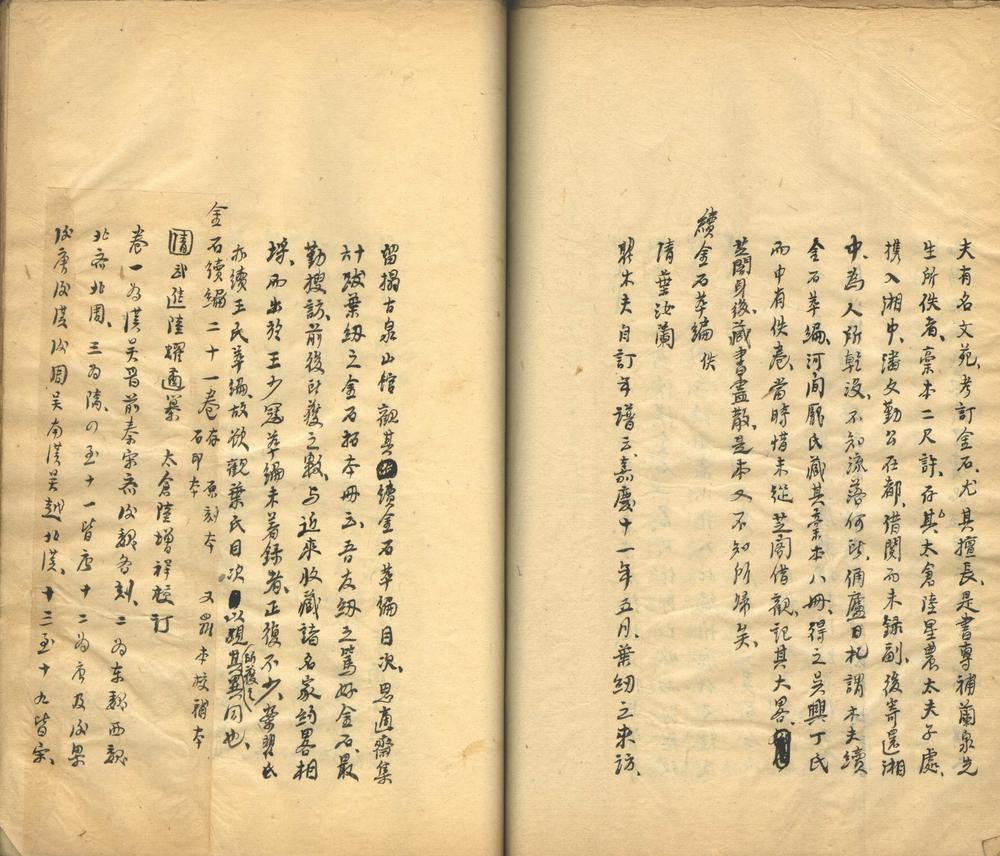 夫有名文苑、考訂金石、尤其擅長、是書專補蘭泉先
生所佚者、稾本二尺許、存其太倉陸星農太夫子處、
携入湘中、潘文勤公在都、借閱而未録副、後寄還湘
中、為人所乾没、不知流落何所、俑廬日札謂木夫續
金石萃編、河間龐氏藏其稾本八冊、得之吳興丁氏
而中有佚卷、當時惜未從芝閣借觀、記其大畧、
芝閣身後、藏書盡散、是本又不知所歸矣、
續金石萃編 佚
清葉汝蘭
瞿木夫自訂年譜云、嘉慶十一年五月、葉紉之來訪、
留揭古泉山館觀其續金石萃編目次、思適齋集
跋葉紉之金石拓本冊云、吾友紉之篤好金石、最
勤搜訪、前後所獲之數、与近來收藏諸名家約畧相
埒、而出於王少寇萃編未著録者、正復不少、葉瞿氏
亦續王氏萃編、故欲觀葉氏目次以視其所獲之異同也、
金石續編二十一卷 存 原刻本 又羣本校補本
石印本
清武進陸耀遹纂 太倉陸增祥校訂
卷一為漢吳晉前秦宋齊後魏各刻、二為東魏西魏
北齊北周、三為隋、四至十一皆唐十二為唐及後梁
後唐後漢後周吳南漢吳越北漢、十三至十九皆宋、